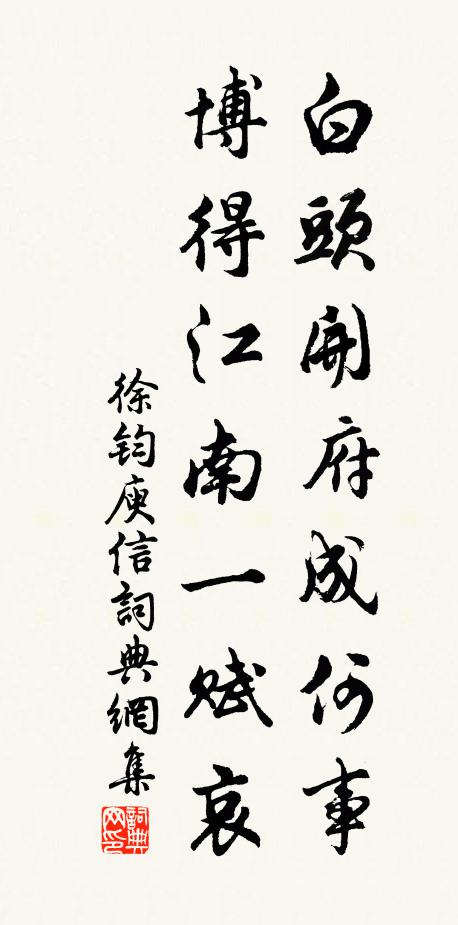 白頭開府成何事
博得江南一賦哀
徐鈞庾信詞典網集
詞典网印